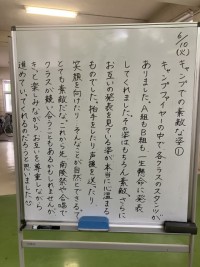 6/10(火)
キャンプでの素敵な姿①
キャンプファイヤーの中で各クラスのスタンツが
ありました。A組もB組も一生懸命に発表
してくれました。その姿はもちろん素敵。さらに
お互いの発表を見ている姿が本当に心温まる
ものでした。拍手をしたり声援を送ったり
笑顔を向けたり そんなことが自然とできるって
とても素敵だな。これから先 南陵祭や合唱で
クラスが競い合うこともあるかもしれませんが
きっと楽しみながら お互いを尊重しながら
進めていってくれるのだろうと思いました